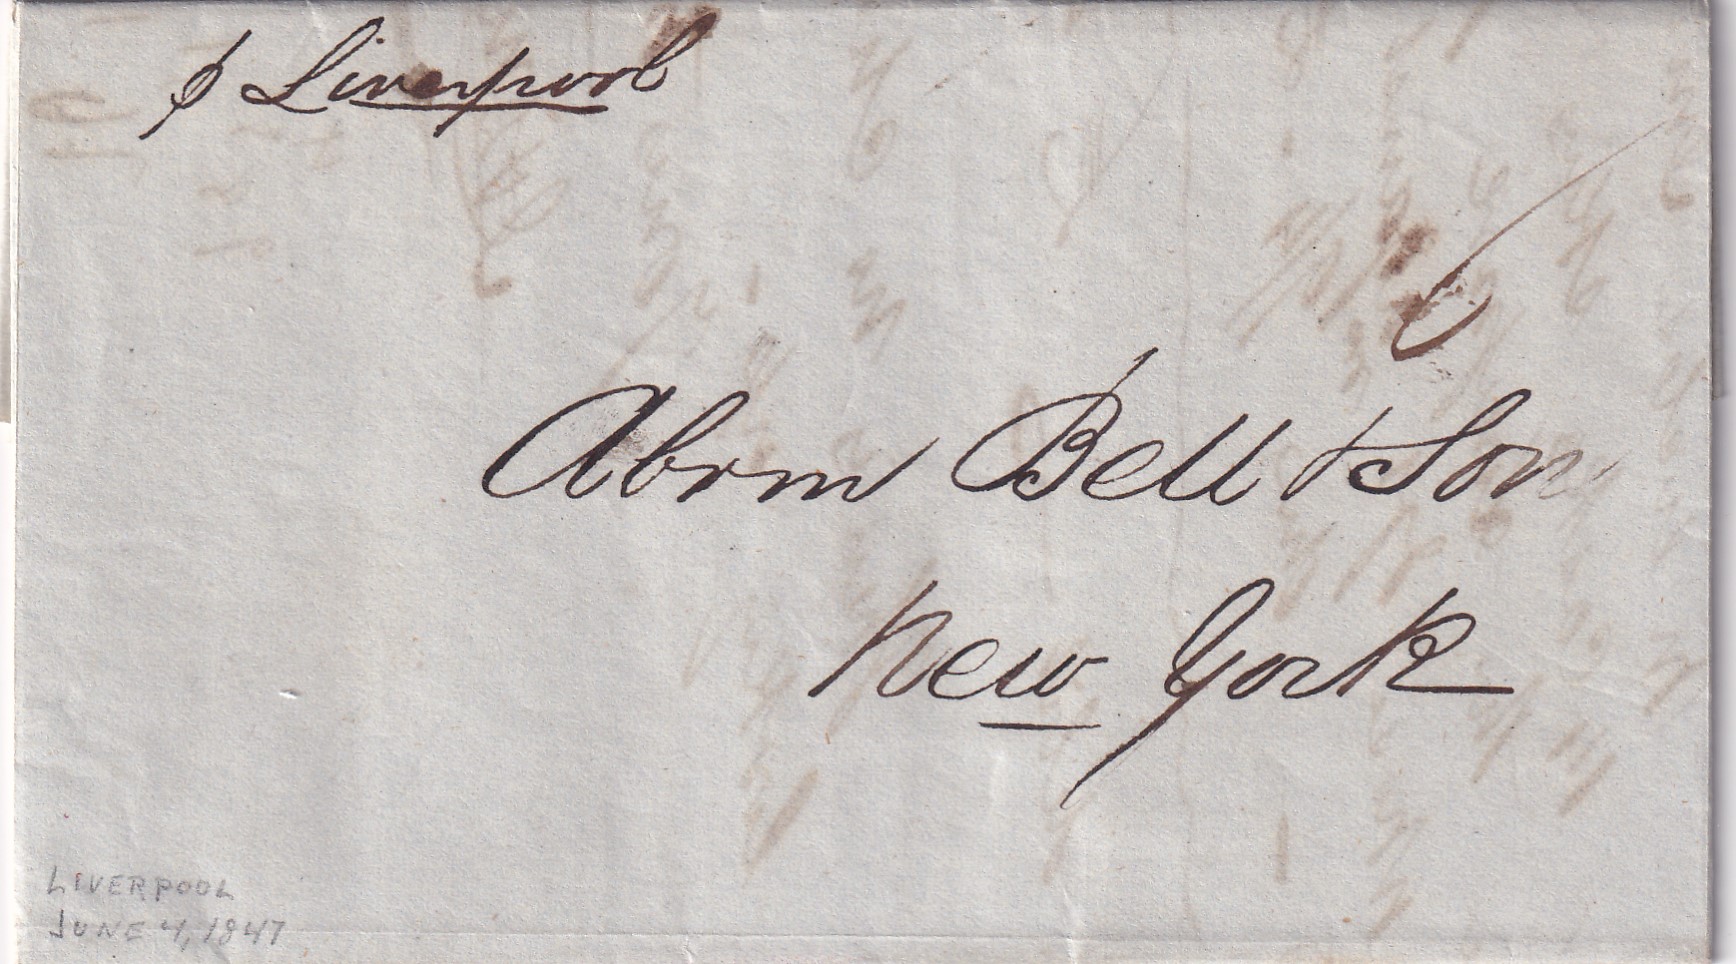 p Liverpool
6
Abrm Bell & Son
New York
LIVERPOOL
JUNE 4, 1847